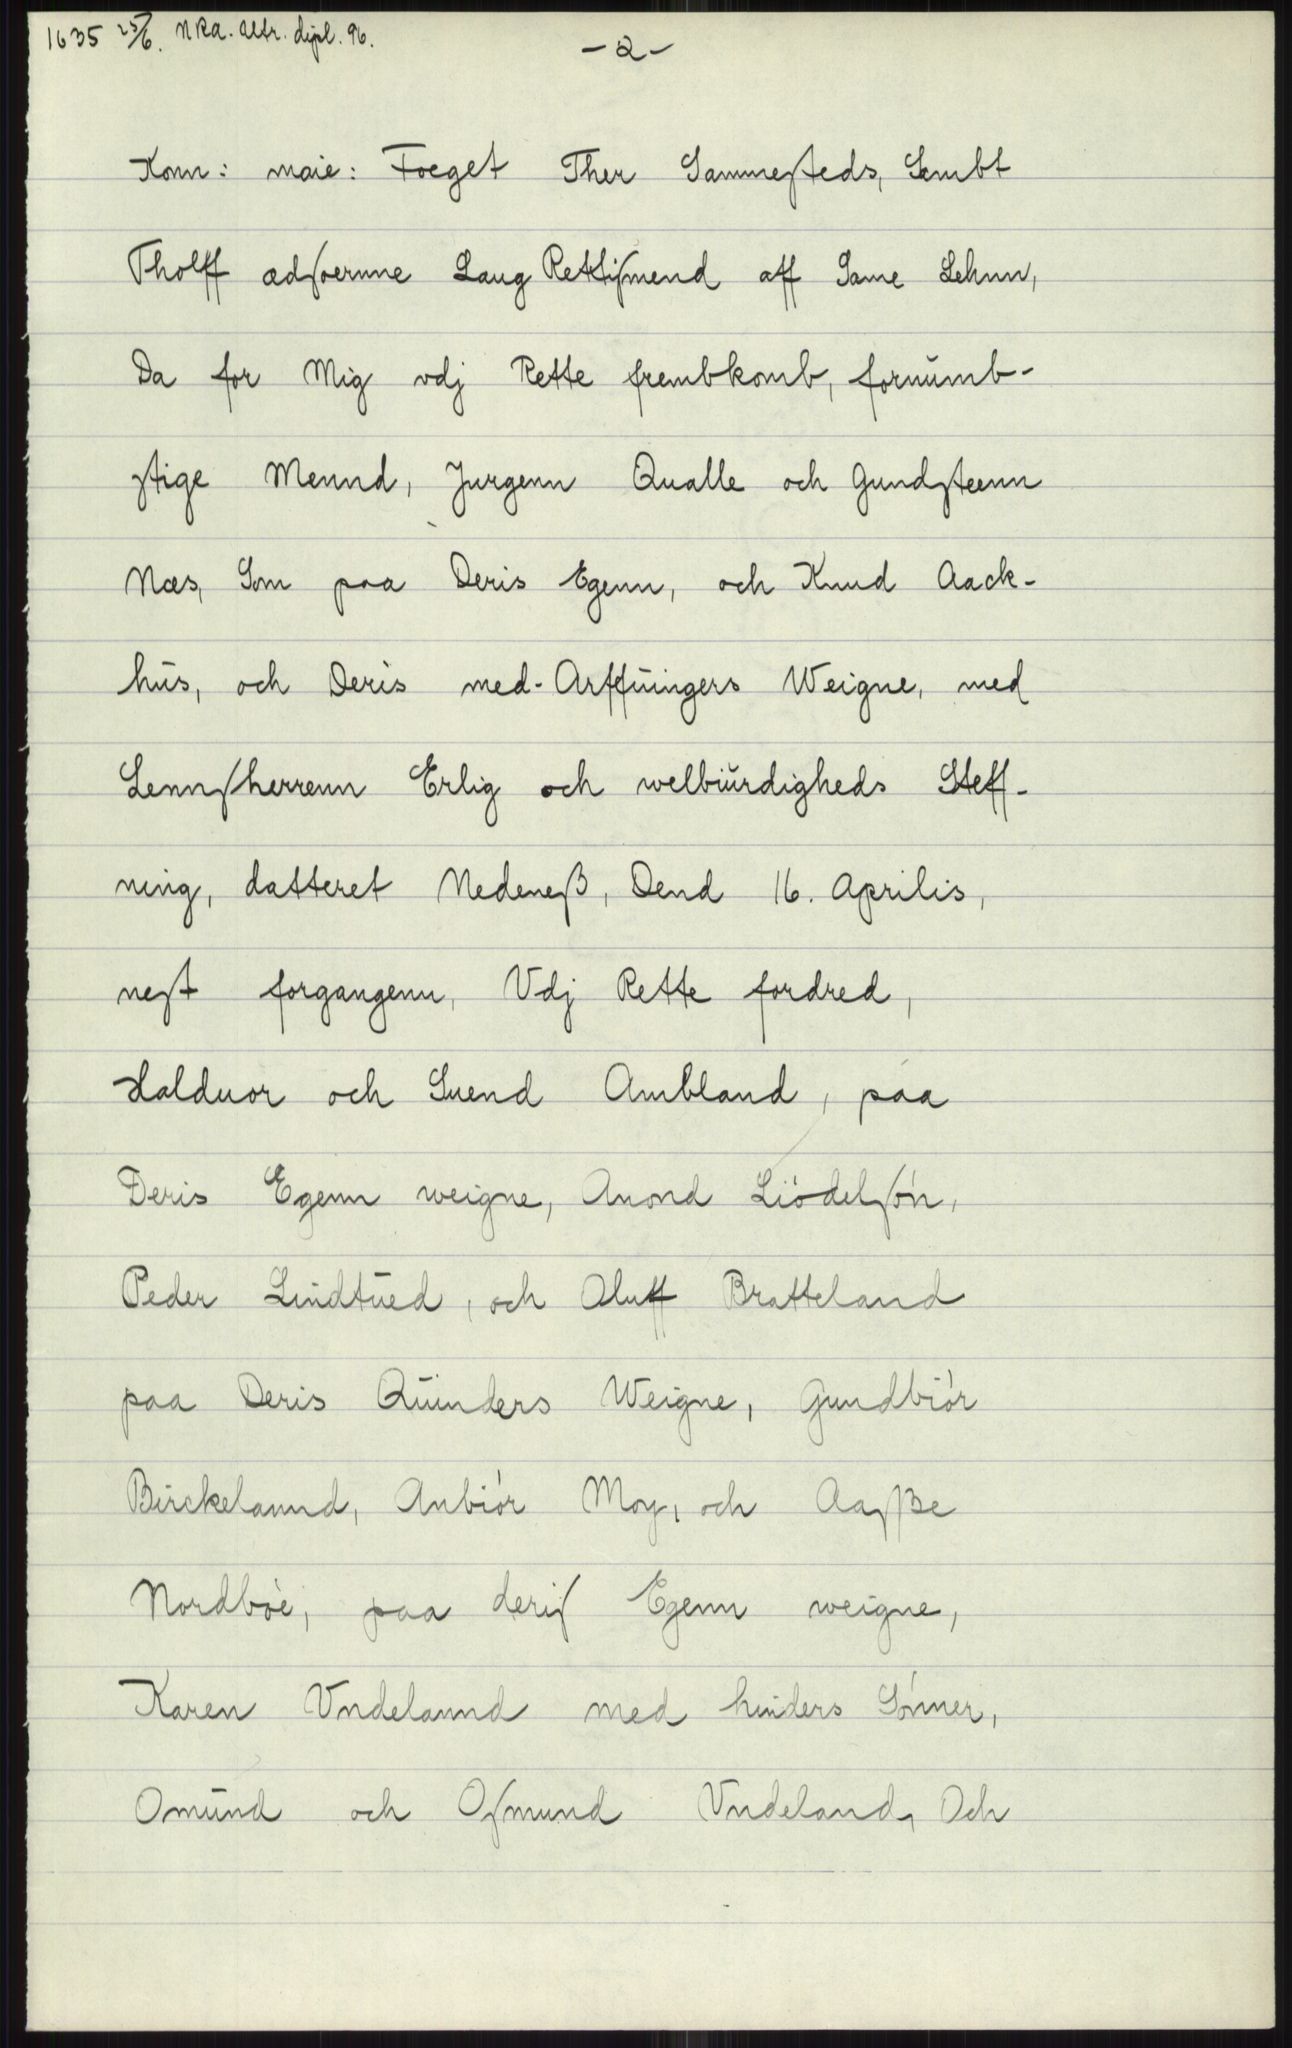 1635 25/6. NRA. Utr. dipl. 96.
- 2 -
Konn: maie: Foeget Ther Sammesteds, Sembt
Tholff ædsoernne Laug Rettismend aff Same Lehnn,
Da for Mig vdj Rette frembkomb, fornŭmb-
stige Mennd, Jurgenn Qualle och Gundsteenn
Næs, Som paa Deris Egenn, och Knud Aack-
hŭs, och Deris med-Arffŭingers Weigne, med
Lennsherrenn Erlig och welbŭrdigheds Steff-
ning, datteret Nedeneß, Dend 16. Aprilis,
nest forgangenn, Vdj Rette fordred,
Halduor och Suend Ambland, paa
Deris Egenn weigne, Anond Liódelsón,
Peder Lindtŭed, och Oluff Bratteland
paa Deris Qŭinders Weigne, Gundbiór
Birckelannd, Anbiór Moy, och Aasße
Nordbóe, paa deris Egenn weigne,
Karen Vndelannd med hinders Sónner,
Omŭnd och Osmund Vndeland, Och